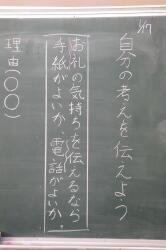 1/17
自分の考えを伝えよう
お礼の気持ちを伝えるなら
手紙がよいか、電話がよいか。
理由(〇〇)